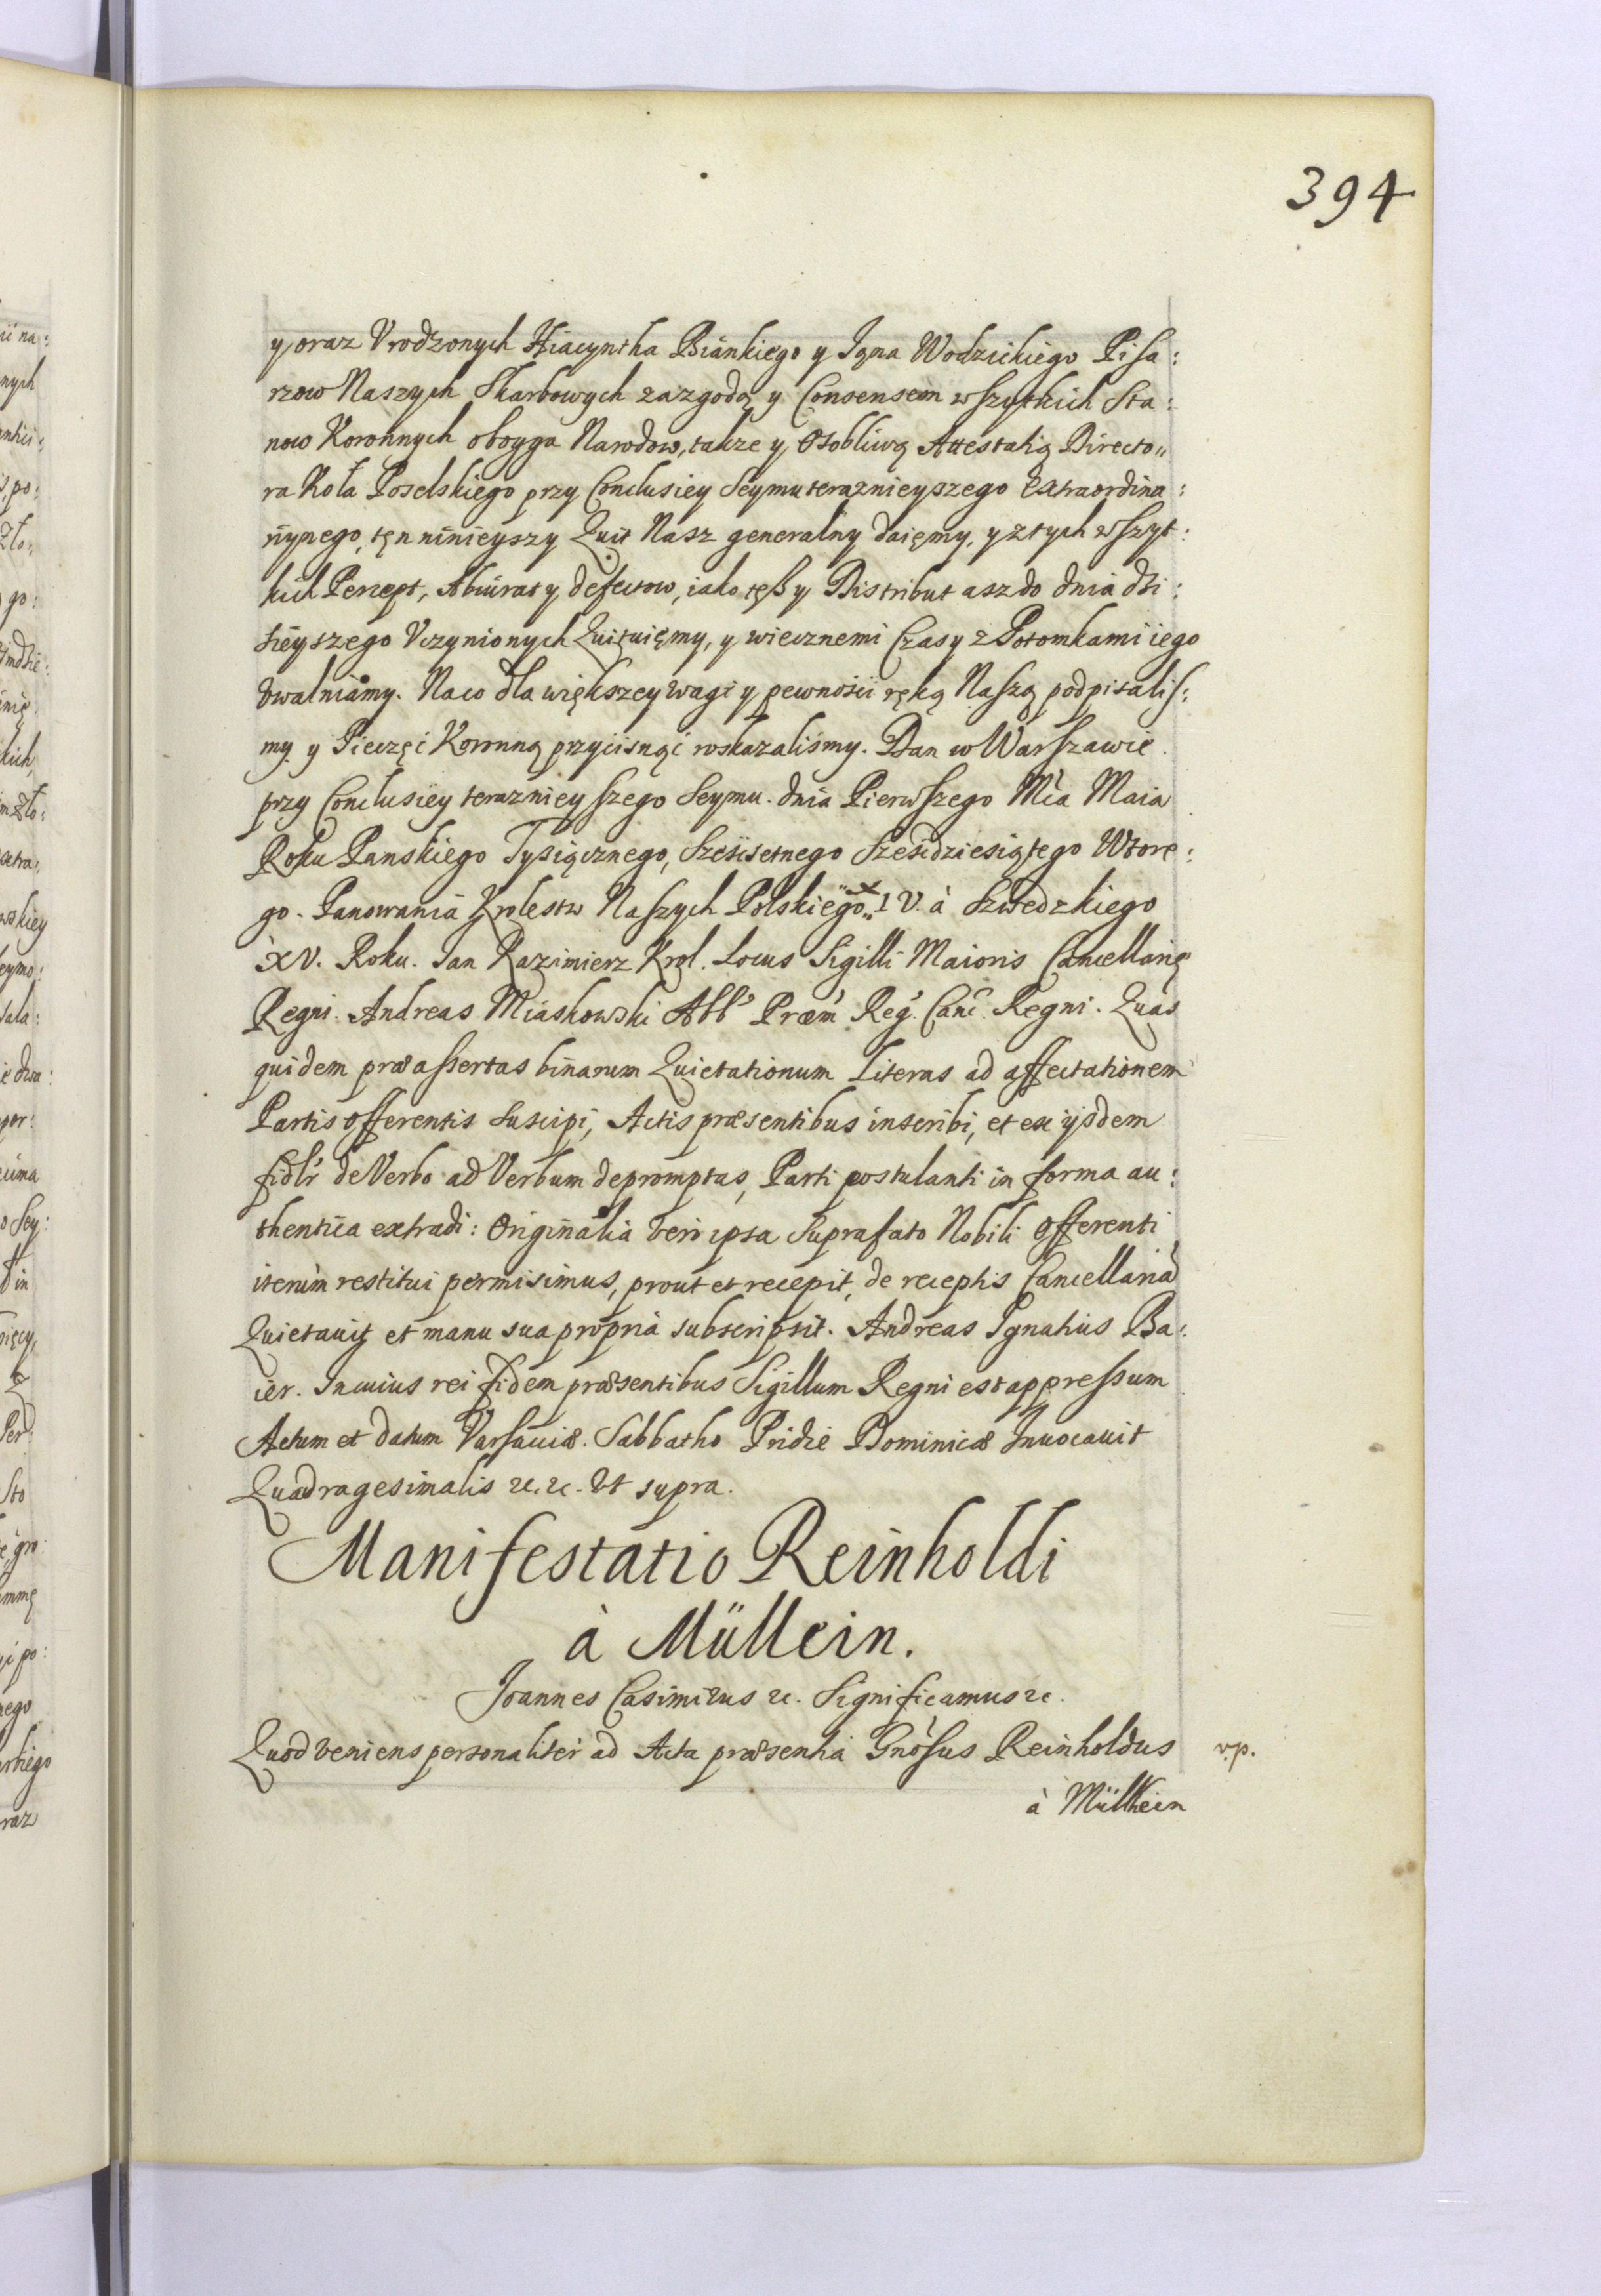 394
y oraz Vrodzonych Hiacyntha Biankiego y Jgna Wodzickiego Pisa:
rzow Naszych Skarbowych za zgodą y Consensem wszytkich Sta:
now Koronnych oboyga Narodow, takze y Osobliwą Attestatią Directo„
ra Koła Poselskiego przy Conclusiey Seymu teraznieyszego Extraordina:
riynego, tęn ninieyszy Quit Nasz generalny daięmy, y z tych wszyt:
kich Percept, Abiurat y defectow, iako tęß y Distribut asz do dnia dzi:
sieyszego Vczynionych Quituięmy, y wiecznemi Czasy z Potomkami iego
Vwalniamy. Na co dla większey wagi y pewności ręką Naszą podpisalis:
my. y Pieczęć Koronną przycisnąć roskazaliśmy. Dan w Warszawie.
przy Conclusiey teraznieyszego Seymu. dnia Pierwszego Mca Maia
Roku Panskiego Tysiącznego, Sześćsetnego Sześcdziesiątego Wtore:
go. Panowania Krolestw Naszych Polskiego XIV. à Szwedzkiego
XV. Roku. Jan Kazimierz Krol. Locus Sigilli Maioris Cancellarię
Regni. Andreas Miaskowski Abb' Præm' Reg' Canc. Regni. Quas
quidem præassertas binarum Quietationum Literas ad affectationem
Partis offerentis suscipi, Actis præsentibus inscribi, et ex ijsdem
fidlr' de Verbo ad Verbum depromptas, Parti postulanti in forma au:
thentica extradi: Originalia vero ipsa Suprafato Nobili offerenti
iterum restitui permisimus, prout et recepit, de receptis Cancellariã
Quietauit et manu sua propria subscripsit. Andreas Ignatius Ba:
ier. In cuius rei fidem præsentibus Sigillum Regni est appressum
Actum et datum Varsauiæ. Sabbatho Pridie Dominicæ Inuocauit
Quadragesimalis &c. &c. Vt supra.
Manifestatio Reinholdi
à Müllein.
Joannes Casimirus &c. Significamus &c.
Quod veniens personaliter ad Acta præsentia Gnosus Reinholdus v.p.
à Müllhein